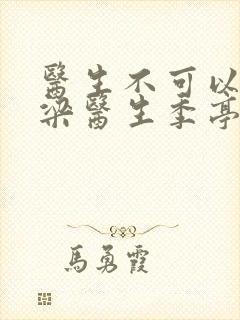 醫生不可以
梁醫生季亭
馬勇霞